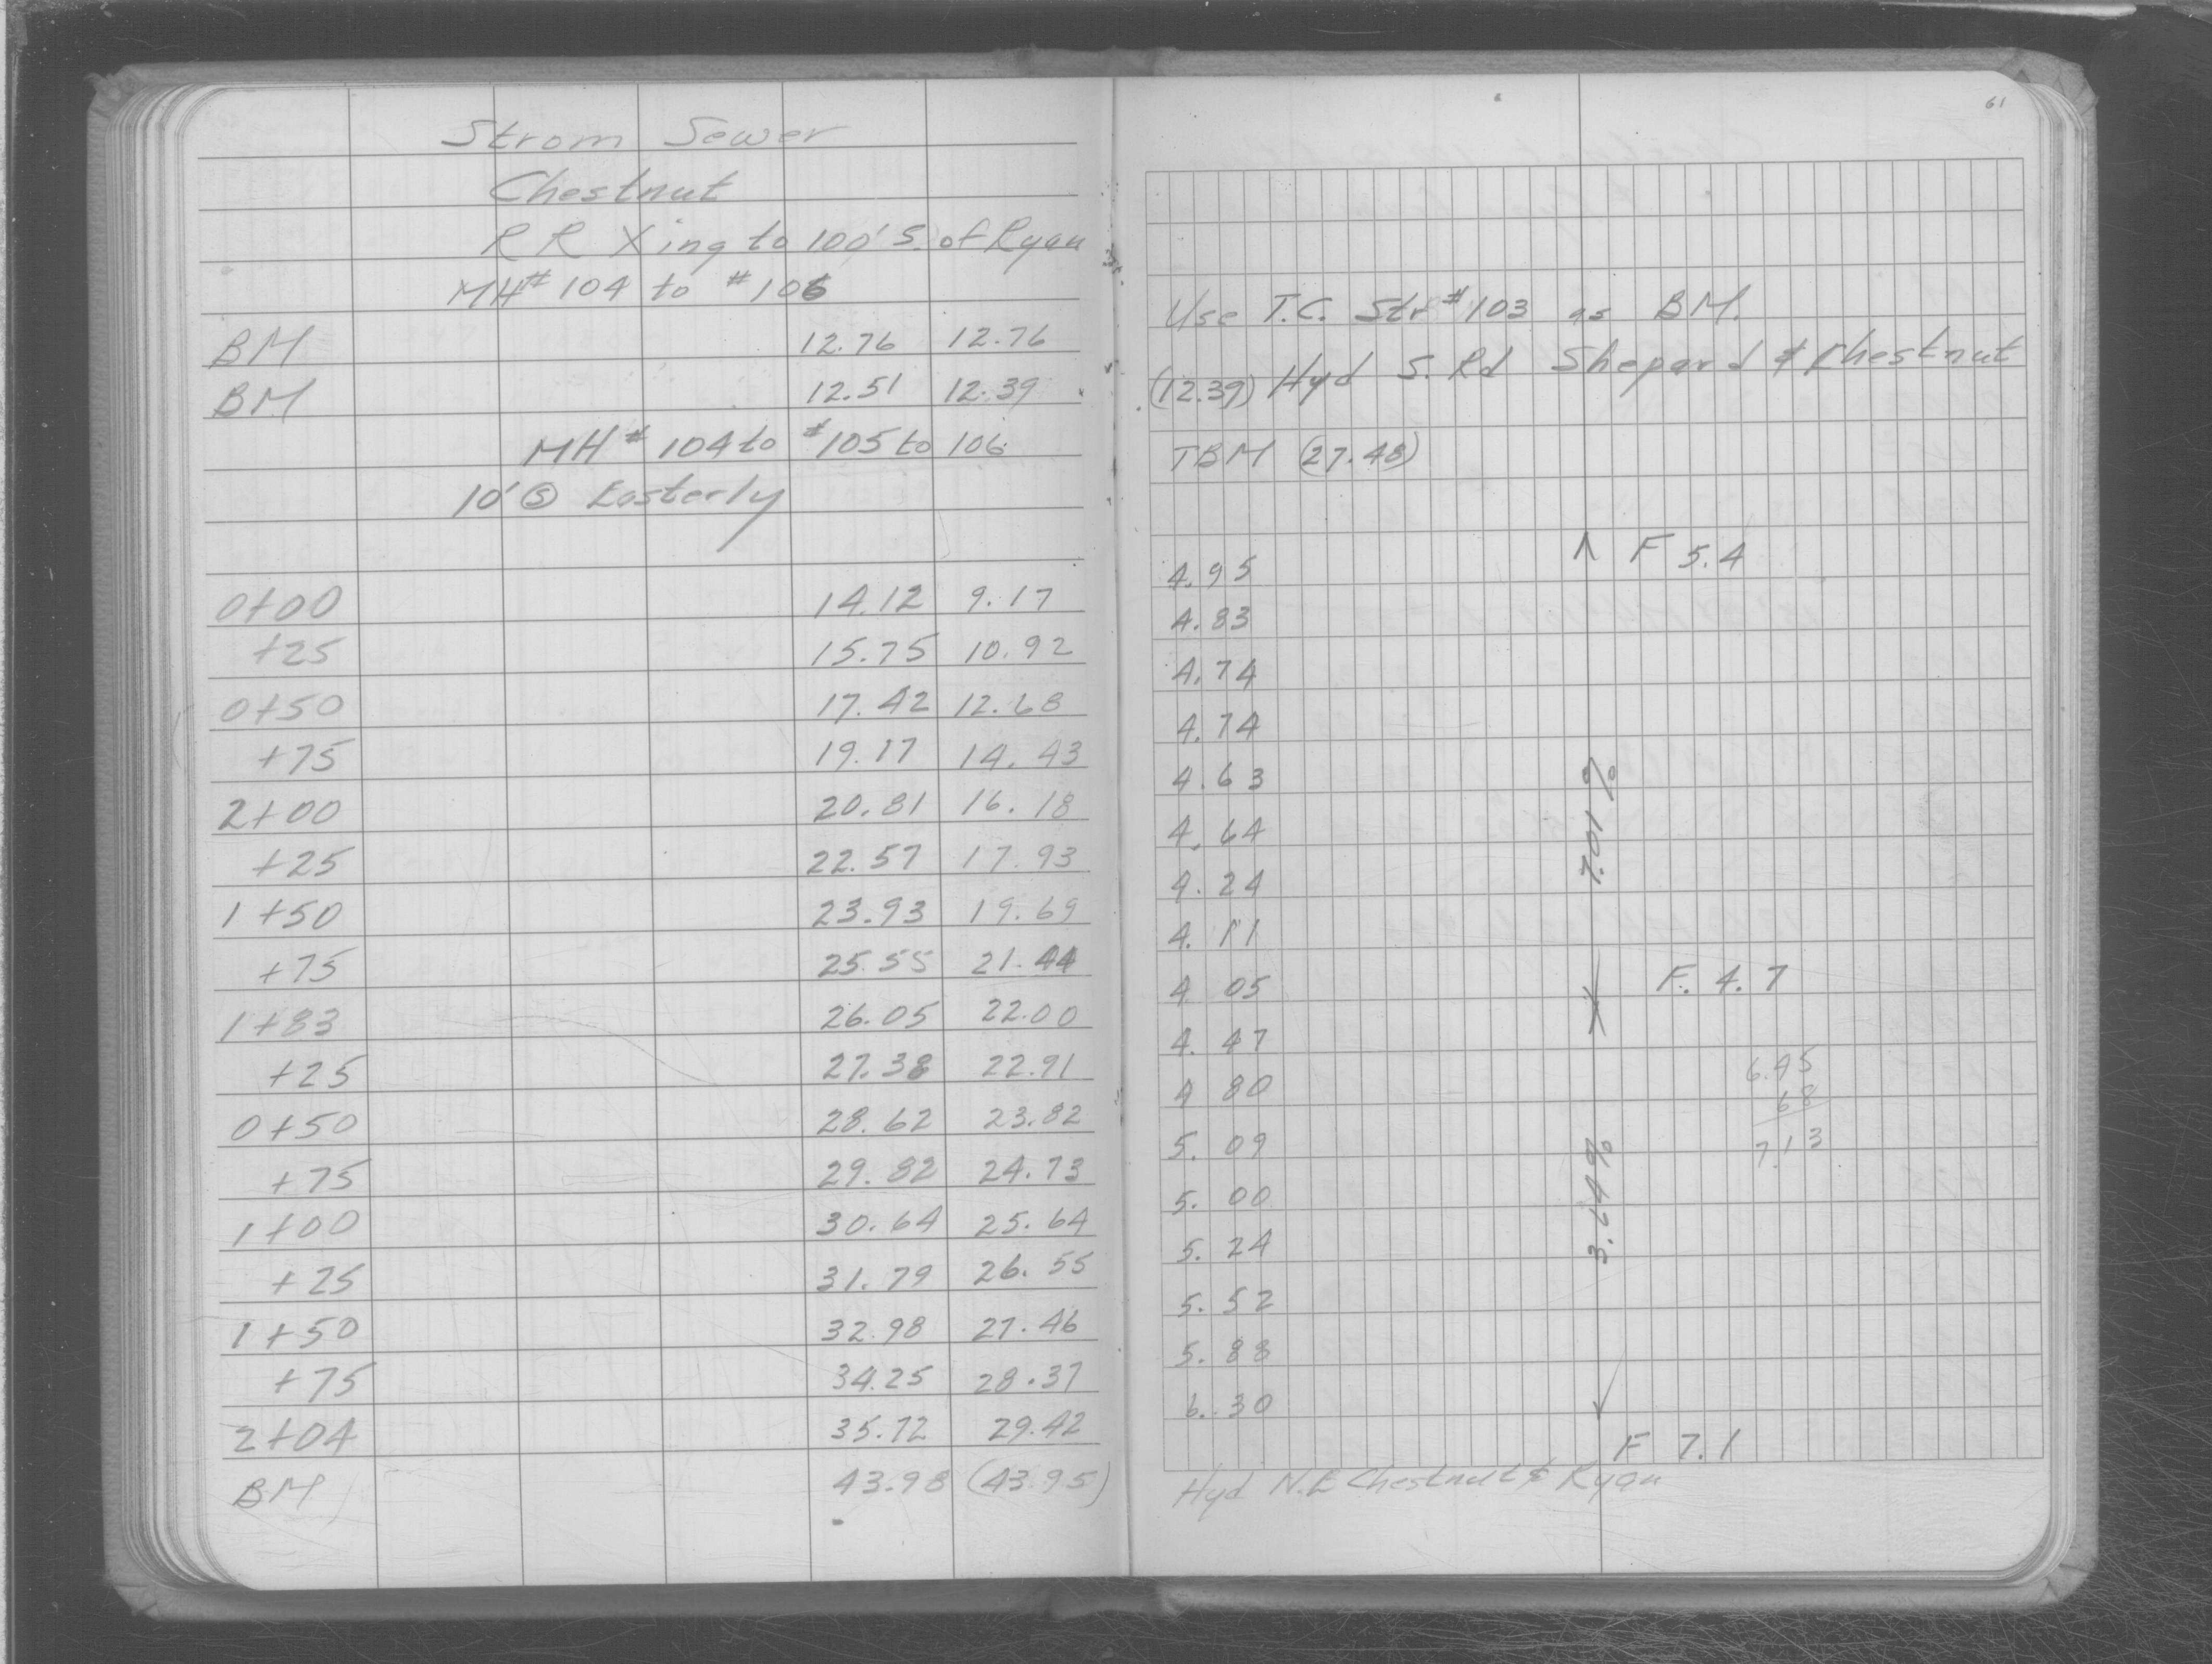 Strom Sewer
Chestnut
R R Xing to 100' S. of Ryan
MH# 104 to #106
BM 12.76 12.76
BM 12.51 12.39
MH# 104 to #105 to 106
10' Ⓢ Easterly
0+00 14.12 9.17
+25 15.75 10.92
0+50 17.42 12.68
+75 19.17 14.43
2+00 20.81 16.18
+25 22.57 17.93
1+50 23.93 19.69
+75 25.55 21.44
1+83 26.05 22.00
+25 27.38 22.91
0+50 28.62 23.82
+75 29.82 24.73
1+00 30.64 25.64
+25 31.79 26.55
1+50 32.98 27.46
+75 34.25 28.37
2+04 35.72 29.42
BM 43.98 (43.95)
61
Use T.C. Str #103 as BM.
(12.39) Hyd S. Rd Shepard & Chestnut
TBM (27.48)
4.95 F 5.4
4.83
4.74
4.74
4.63
4.64
4.24
7.01%
4.11
4 05 F. 4.7
4.47
4 80
6.45
68
7.13
5.09
5.00
5.24
3.64%
5.52
5.88
6.30
F 7.1
Hyd N.E Chestnut & Ryan